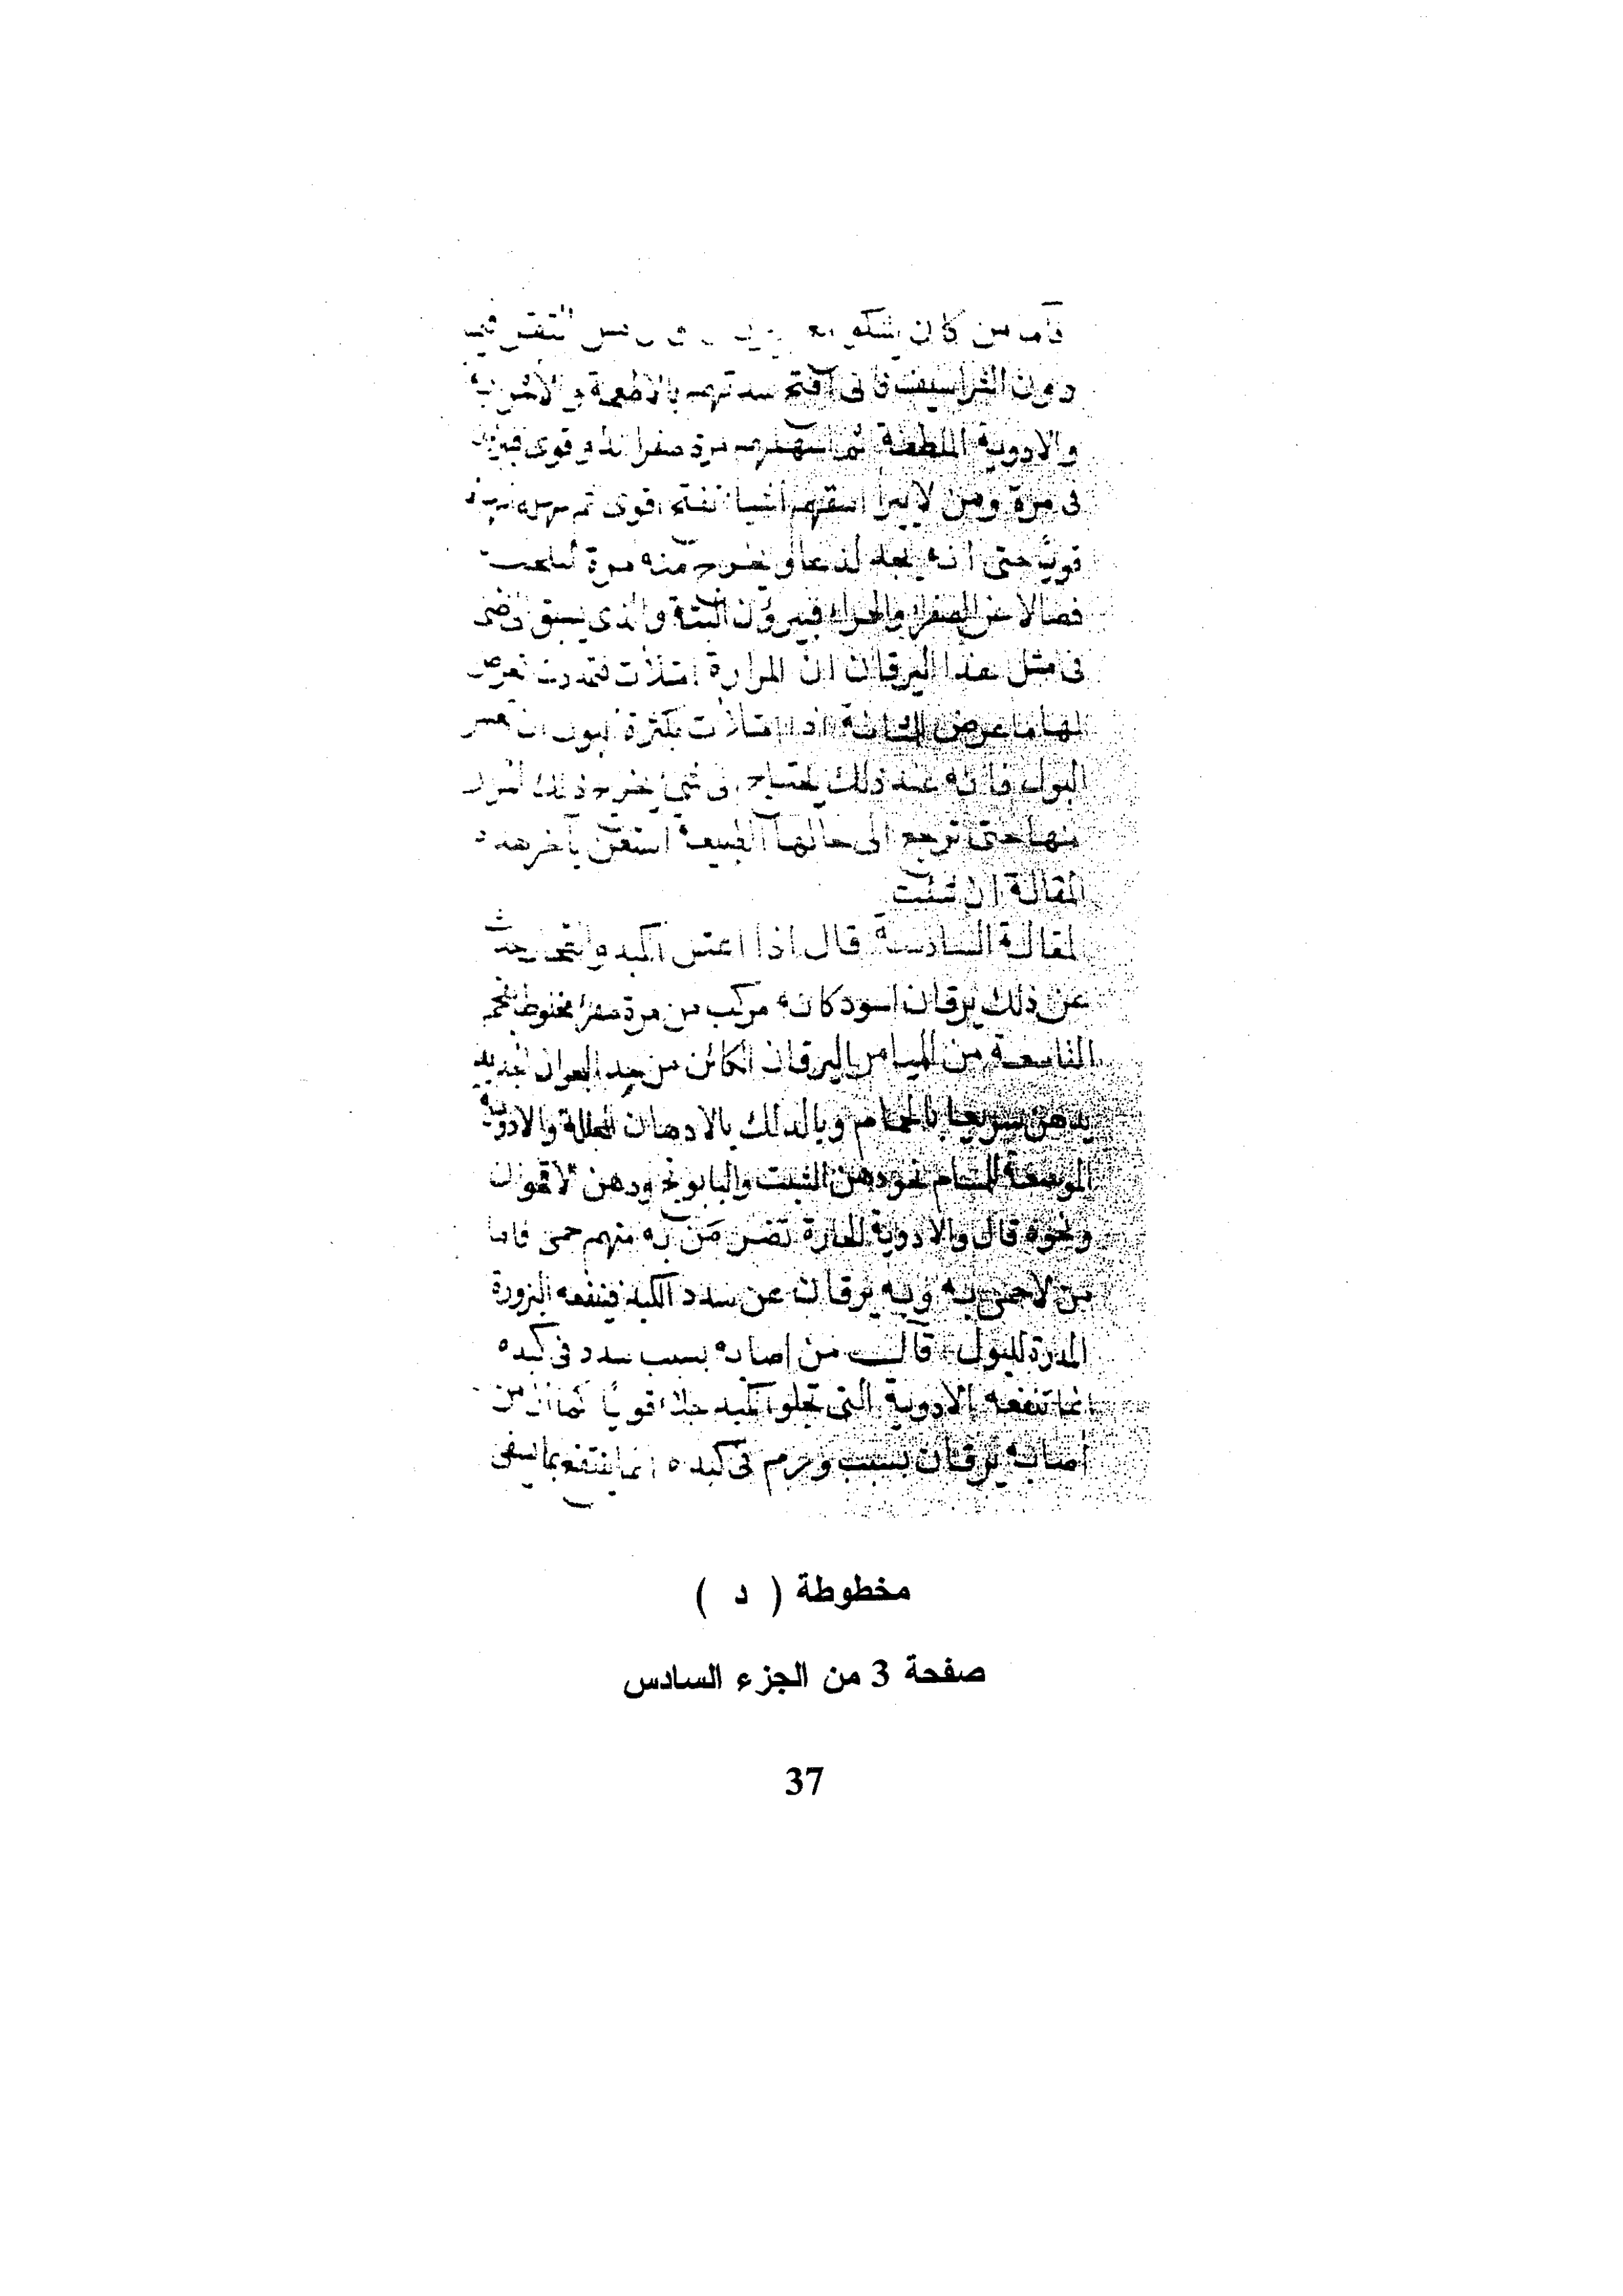 فاما من كان يشكو الثقل فيما
دون الشراسيف فانى افتح سددهم بالاطعمة والاشربة
والادوية الملطفة ثم اسهلهم مرة صفرا بدواء قوى
فى مرة ومن لا يبرا اسقيهم اشيا تفتح اقوى ثم
قويا حتى انه يجد لذعا ويخرج منه مرة
فضلا عن الصفرا والحمرا فيبرؤن البتة والذى يسبق
فى مثل هذا اليرقان ان المرارة امتلات فتمددت فعرض
لها ما عرض للمثانة اذا امتلات بكثرة البول ان تعسر
البول فانه عند ذلك يحتاج الى شى يخرج ذلك
منها حتى ترجع الى حالها الطبيعية استعن باخر هذه
المقالة ان شئت
المقالة السادسة قال اذا اعتل الكبد حدث
عن ذلك يرقان اسود كانه مركب من مرة صفرا مخلوط بفحم
التاسعة من الميامر اليرقان الكائن من جيد البحران
يذهب سريعا بالحمام وبالدلك بالادهان المحللة والادوية
الموسعة للمسام نحو دهن الشبت والبابونج ودهن الاقحوان
ونحوه قال والادوية الحارة تضر من به منهم حمى فاما
من لا حمى به وبه يرقان عن سدد الكبد فينفعه البزور
المدرة للبول قال من اصابه بسبب سدد فى كبده
انما تنفعه الادوية التى تجلو الكبد جلاء قويا كما ان من
اصابه يرقان بسبب ورم فى كبده انما ينتفع بما يسقى
مخطوطة ( د )
صفحة 3 من الجزء السادس
37